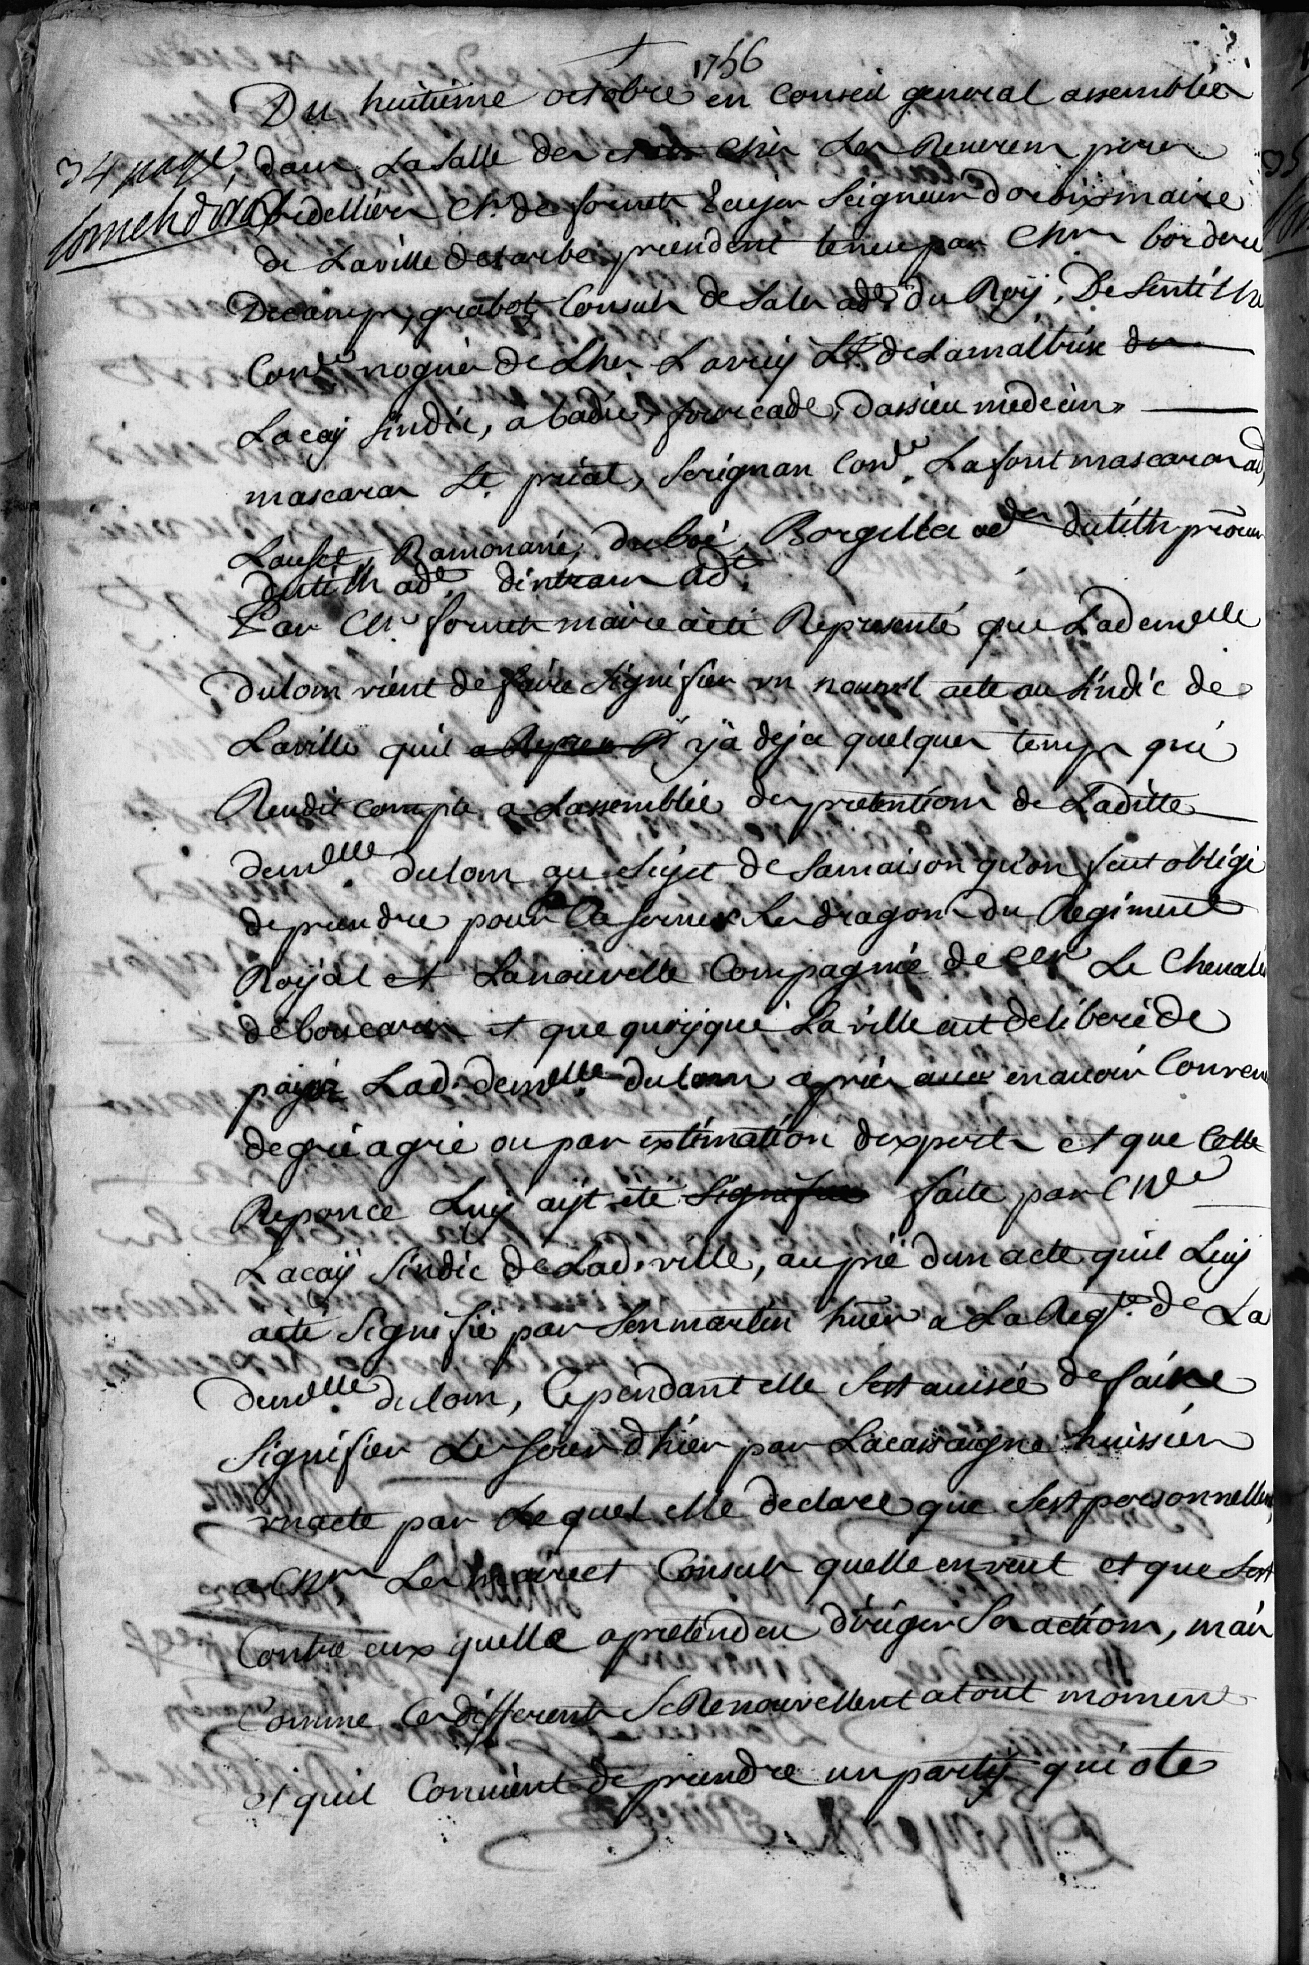 1756
Du huitieme octobre en Conseil general assemblée
34 page, dans La Salle des Chés Les Reverens peres
Cordelliers Mr. de fornets Ecuyer Seigneur doroix maire
de La ville de tarbe, president teneu par Mrs bordere
Decamps, grabot Consuls de Sales ade. du Roy, De Sentilhe
Conr. noguès de Lher Laruy Lt. de La maitrise
Lacay sindic, abadie, fourcade, dassieu medecin,
mascaran Lt. prial, Serignan Conr. Lafont mascaron ad,
Lauset, Ramonane, duboé, Borgella ades dutilh procur
dutilh ade. dintrans ade.
Par Mr. fornets maire a été Representé que La demelle
dulom vient de faire signifier un nouvel acte au sindic de
La ville quil y a deja quelques temps que
Rendit compte a Lassemblée des pretentions de Laditte
demelle dulom au sujet de sa maison qu'on feut obligé
de prendre pour Caserner Les dragons du Regiment
Royal et La nouvelle Compagnie de Mr Le Chevalie
de boucaren et que quoyque La ville eut deliberé de
payer Lad. demelle dulom après en avoir Conven
de gré a gré ou par extimation dexperts et que Cette
Reponce Luy ayt été faite par Mr
Lacay sindic de Lad. ville, au pié dun acte quil Luy
a eté signifié par Senmartin hier a La Reqte. de La
demelle dulom, Cependant elle sest avisée de faire
signifier Le soir d'hier par Lacassaigne huissier
un acte par Lequel elle declare que Sest personnellem,
a Mrs Les maire et Consuls quelle en veut et que Sest
Contre eux quelle a pretendeu diriger Ses actions, mais
Comme Ces differents Se Renouvellent a tout moment
et quil Convient de prendre un party qui ote